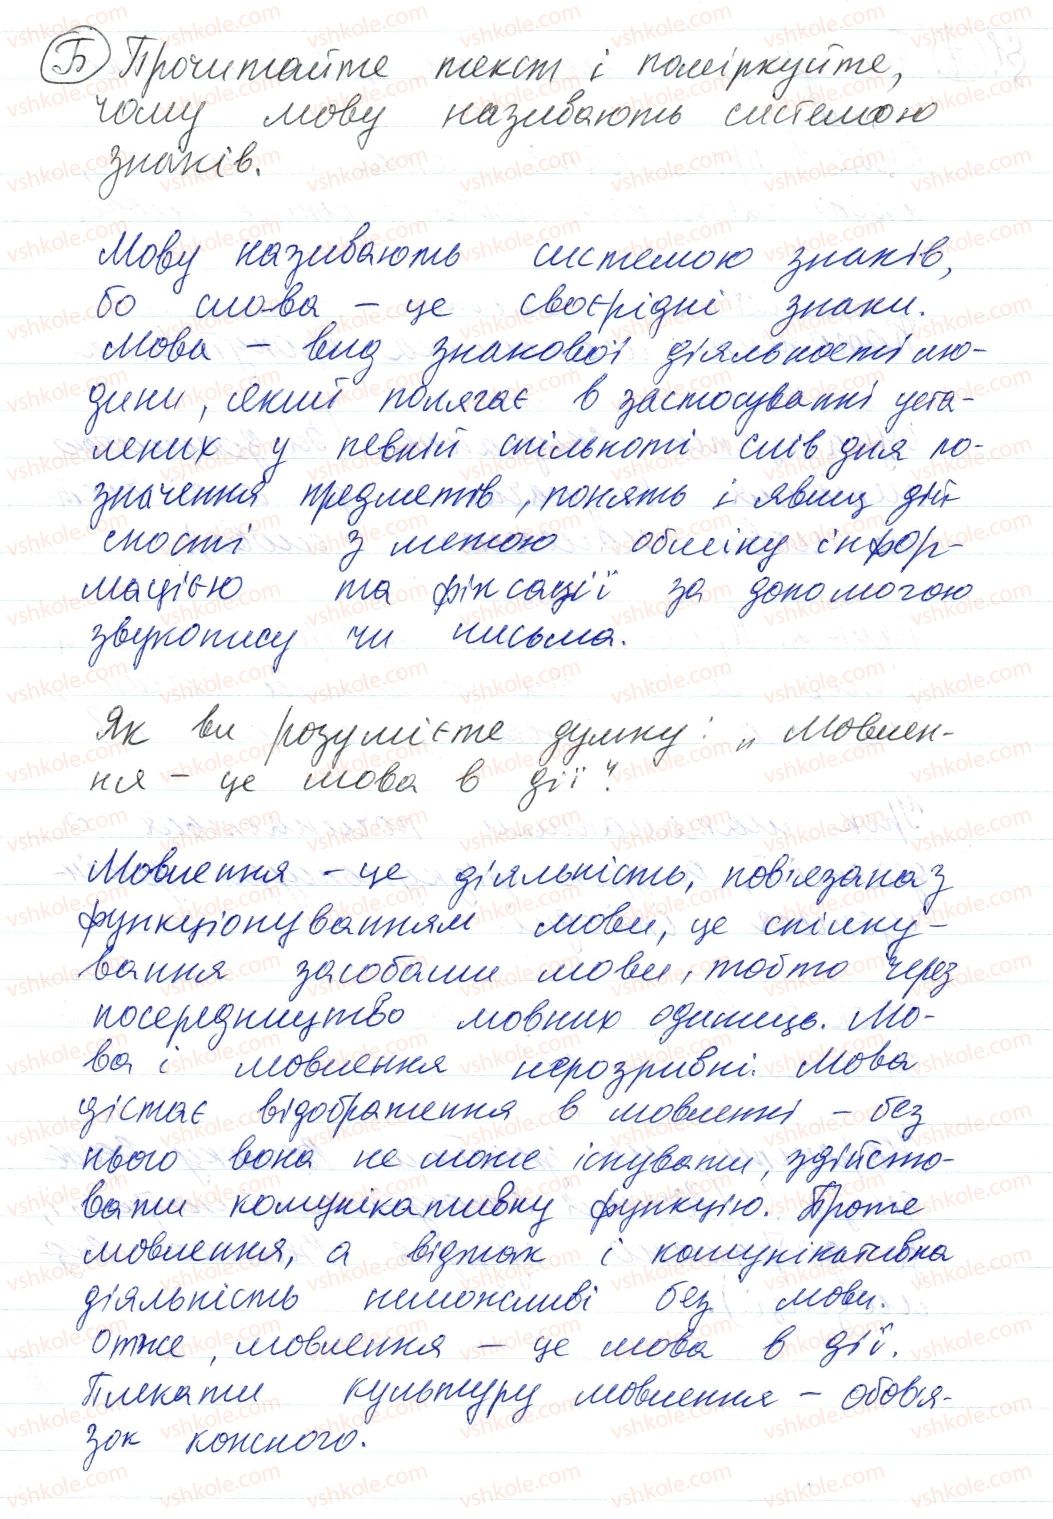 Б Прочитайте текст і поміркуйте,
чому мову називають системою
знаків.
Мову називають системою знаків,
бо слова – це своєрідні знаки.
Мова – вид знакової діяльності лю-
дини, який полягає в застосуванні уста-
лених у певній спільноті слів для по-
значення предметів, понять і явищ дій
сності з метою обміну інфор-
мацією та фіксації за допомогою
звукопису чи письма.
Як ви розумієте думку: „Мовлен-
ня – це мова в дії"?
Мовлення – це діяльність, пов'язана з
функціонуванням мови, це спілку-
вання засобами мови, тобто через
посередництво мовних одиниць. Мо-
ва і мовлення нерозривні. Мова
дістає відображення в мовленні – без
нього вона не може існувати, здійсню-
вати комунікативну функцію. Проте
мовлення, а відтак і комунікативна
діяльність неможливі без мови.
Отже, мовлення – це мова в дії.
Плекати культуру мовлення – обов'я-
зок кожного.